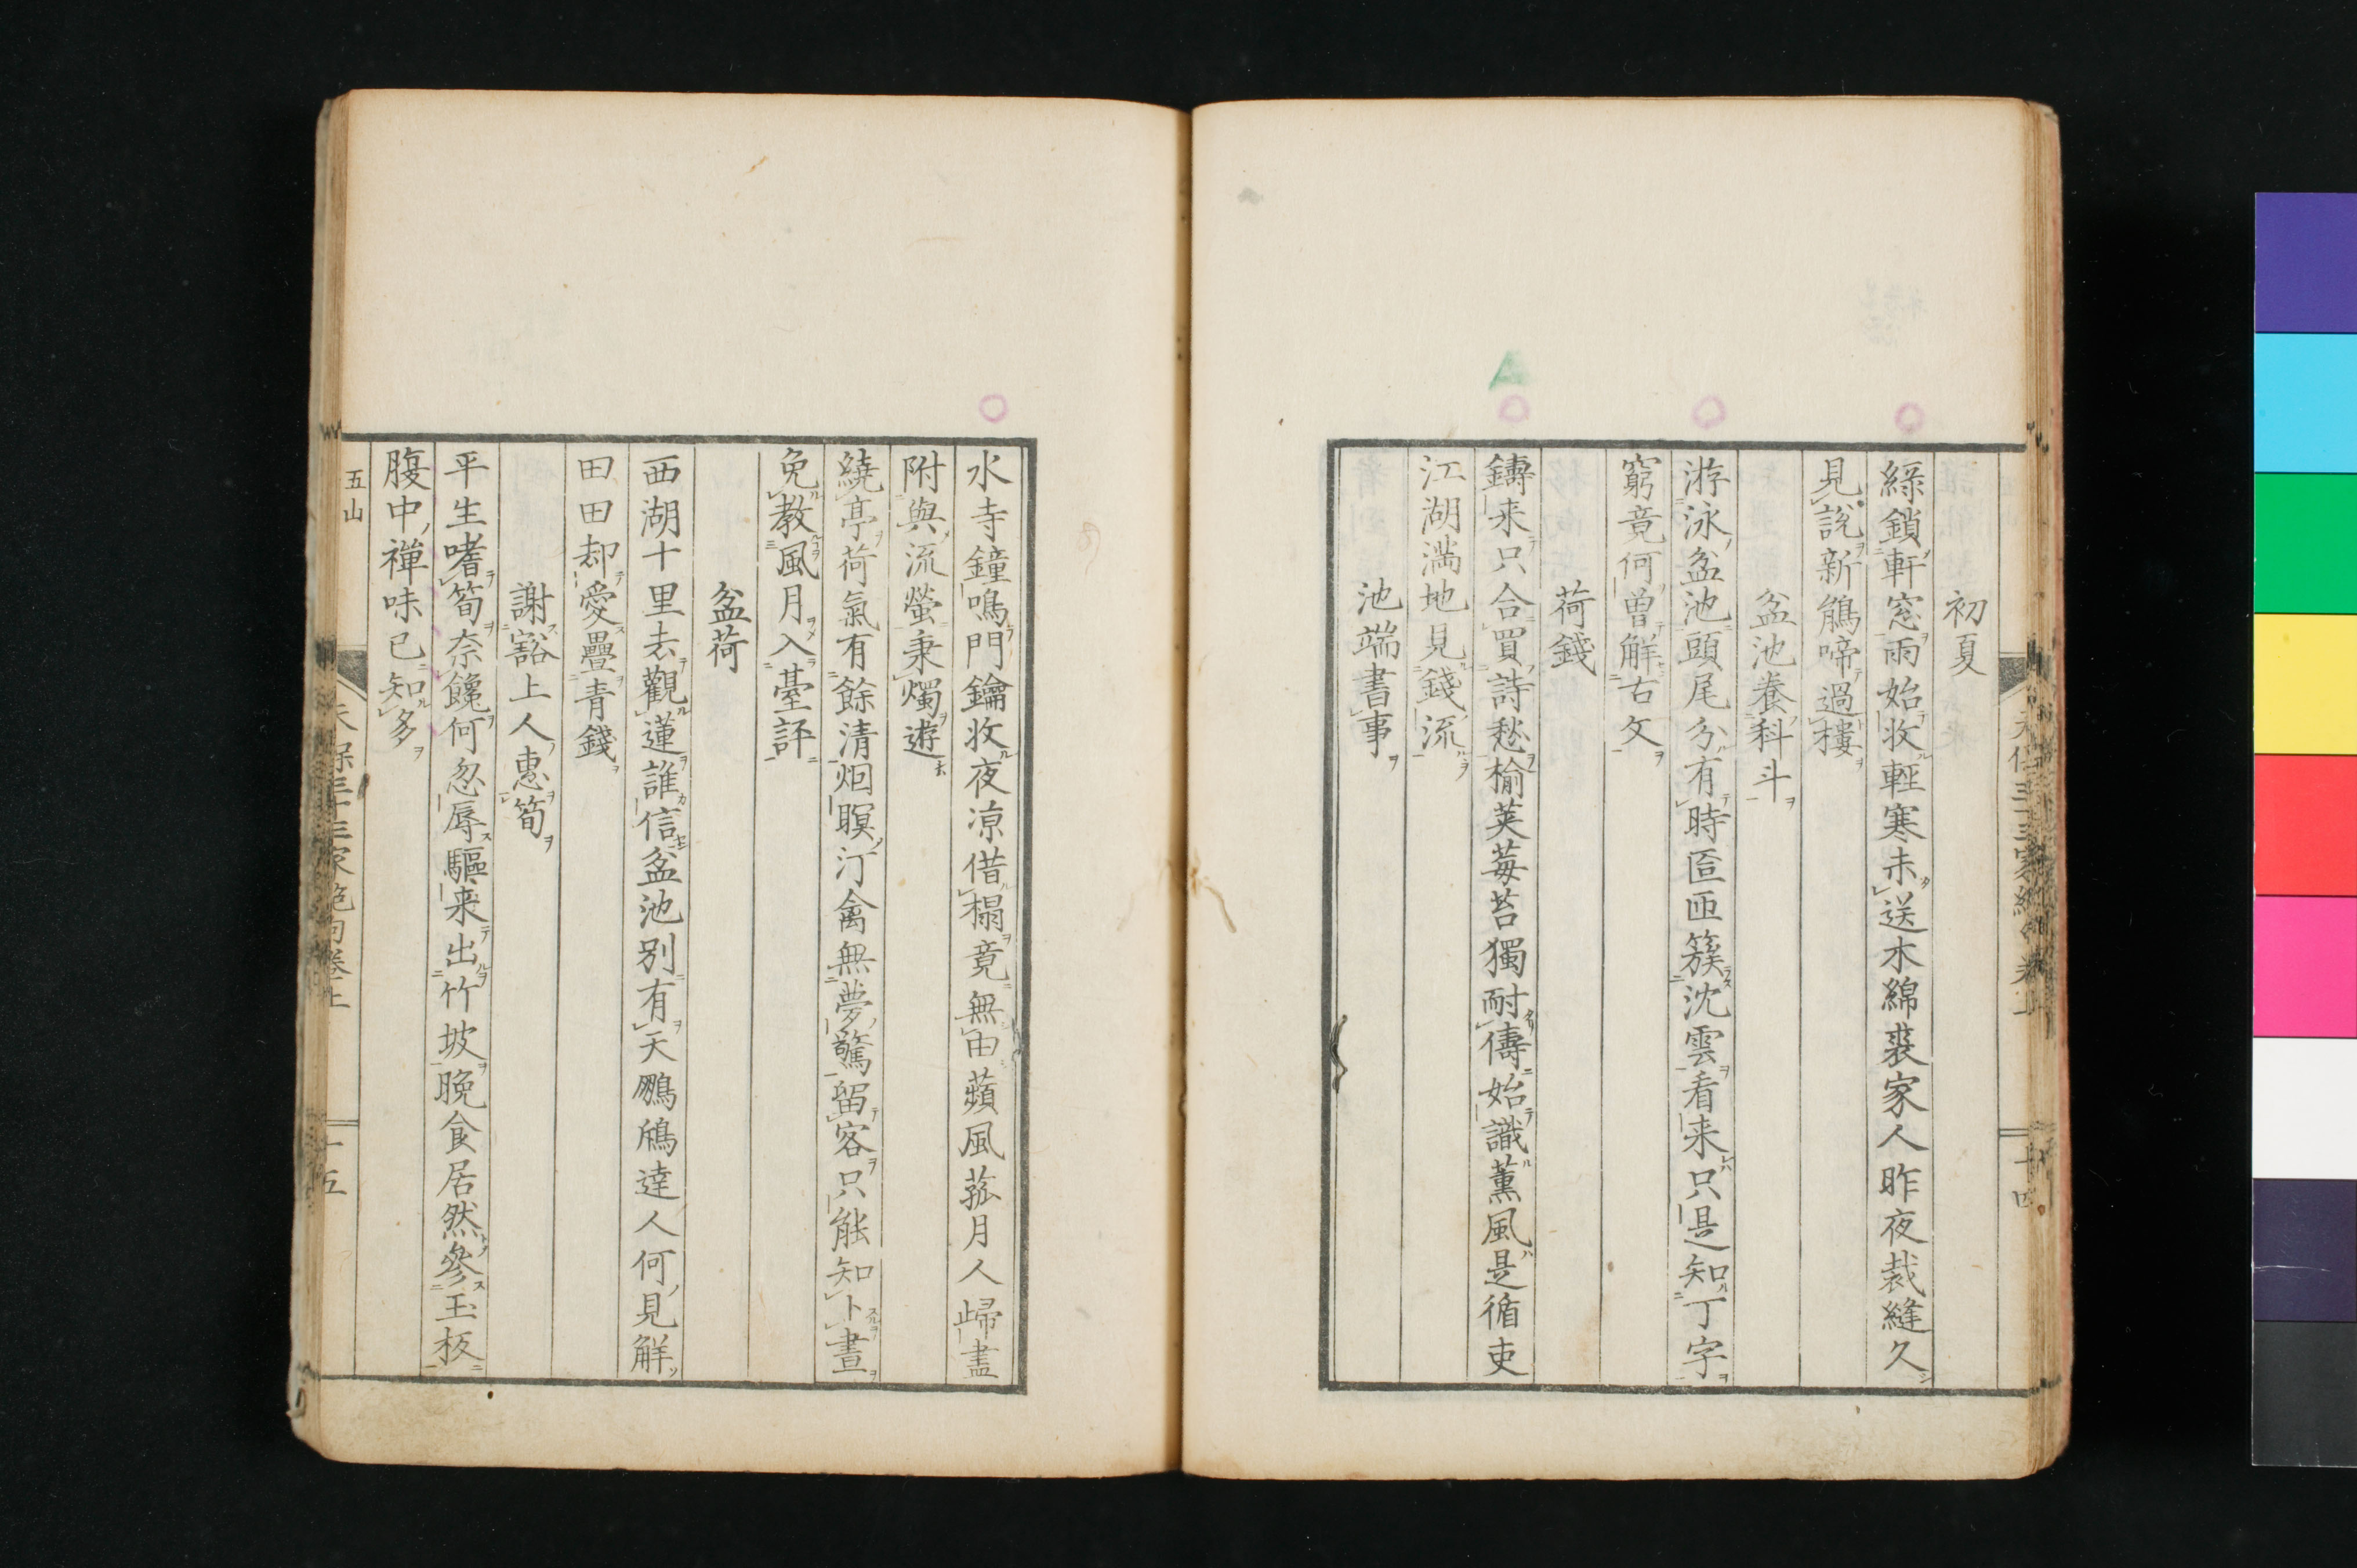 初夏
綠鎖軒窓雨始收輕寒未送木綿裘家人昨夜裁縫久
見說新鵤啼過樓
盆池養科斗
游泳盆池頭尾分有時匼匝簇沈雲看来只是知丁字
窮竟何曽解古文
荷錢
鑄来只合買詩愁榆莢莓苔獨耐儔始識薫風是循吏
江湖滿地見錢流
池端書事
水寺鐘鳴門鑰收夜凉借榻竟無由蘋風菰月人歸盡
附與流螢秉燭遊
繞亭荷氣有餘清烟暝汀禽無夢驚留客只能知卜晝
免教風月入臺評
盆荷
西湖十里去觀蓮誰信盆池別有天鵬鷃達人何見解
田田却愛疊青錢
謝谿上人惠筍
平生嗜筍奈饞何忍辱驅来出竹坡晚食居然參玉板
腹中禪味已知多
五山
天保三十三家絶句卷上
十五